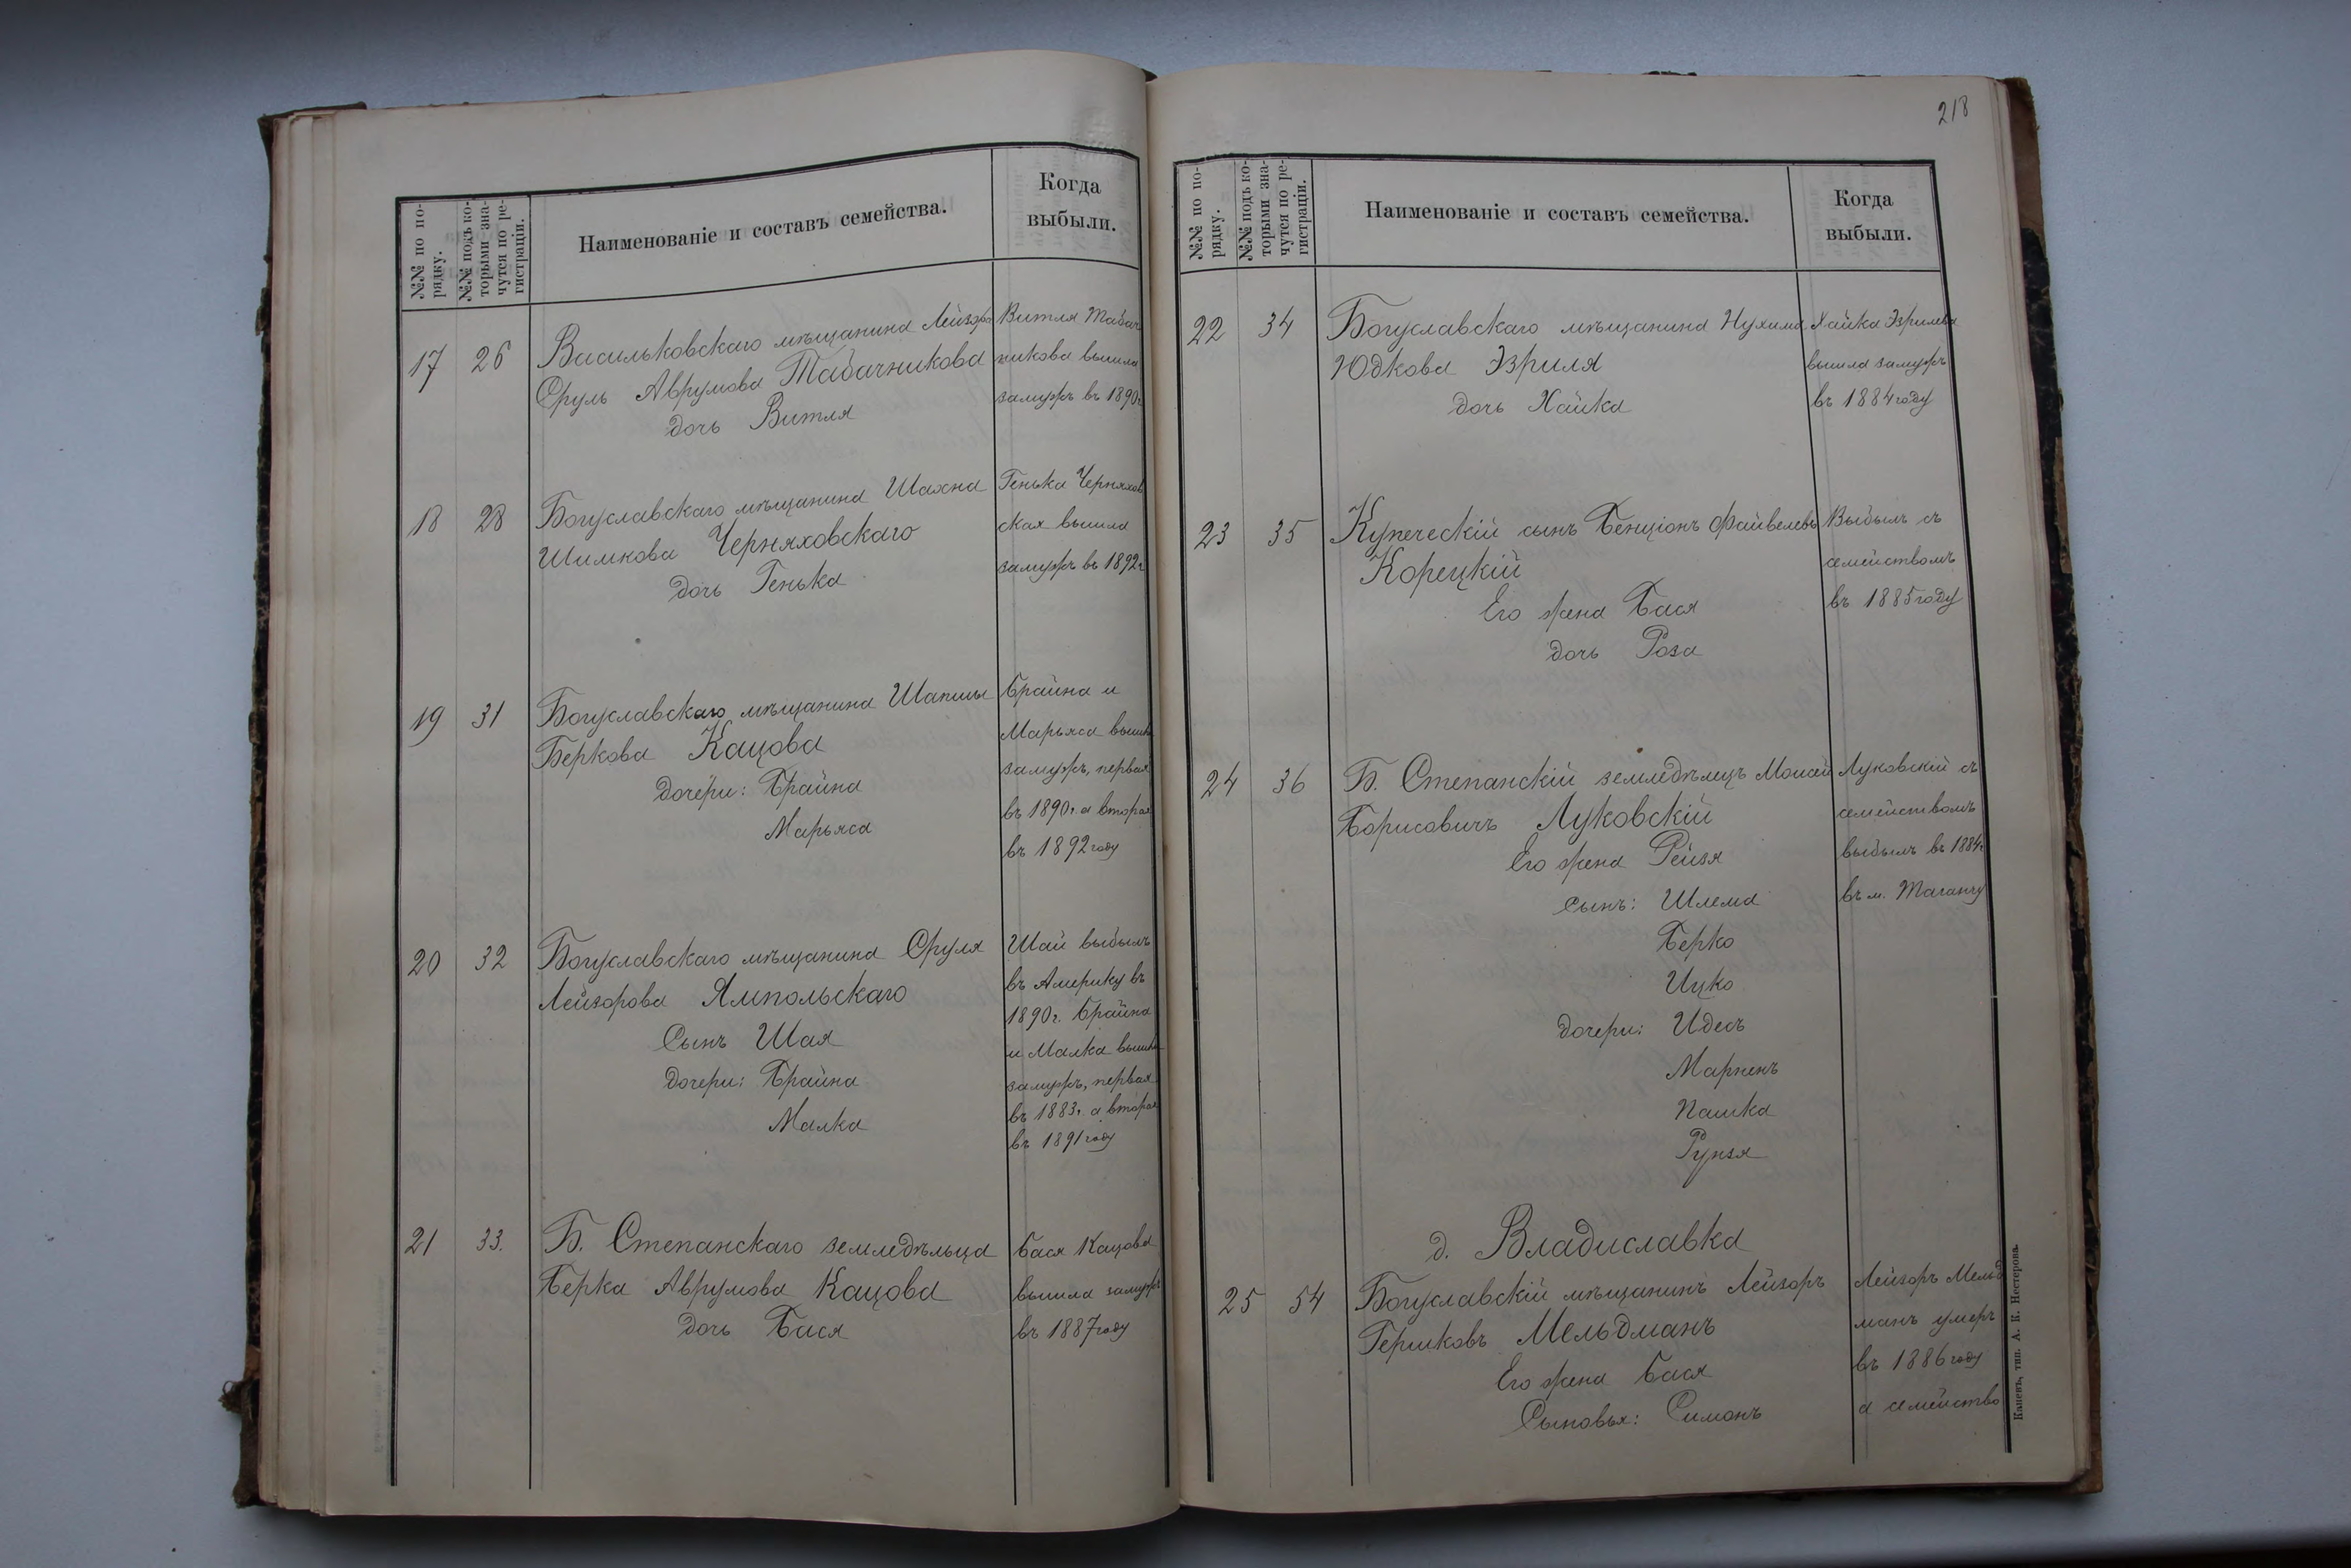 №№ по по-
рядку.
№№ подъ ко-
торыми зна-
чутся по ре-
гистраціи.
Наименованіе и составъ семейства.
Когда
выбыли.
17 26 Васильковскаго мѣщанина Лейзоръ
Сруль Аврумова Табачникова
дочь Витля
Витля Табач
никова вышла
замужъ въ 1890г
18 28 Богуславскаго мѣщанина Шахна
Шимкова Черняховскаго
дочь Генька
Генька Черняхов
ская вышла
замужъ въ 1892г
19 31 Богуславскаго мѣщанина Шапшы
Беркова Кацова
дочери: Брайна
Марьяса
Брайна и
Марьяса вышли
замужъ, первая
въ 1890г. а вторая
въ 1892 году
20 32 Богуславскаго мѣщанина Сруля
Лейзорова Ямпольскаго
Сынъ Шая
дочери: Брайна
Малка
Шай выбылъ
въ Америку въ
1890г. Брайна
и Малка вышли
замужъ, первая
въ 1883г. а вторая
въ 1891 году
21 33. Б. Степанскаго земледѣльца
Берка Аврумова Кацова
дочь Бася
Бася Кацова
вышла замужъ
въ 1887 году
218
№№ по по-
рядку.
№№ подъ ко-
торыми зна-
чутся по ре-
гистраціи.
Наименованіе и составъ семейства.
Когда
выбыли.
22 34 Богуславскаго мѣщанина Нухима
Юдкова Эзриля
дочь Хайка
Хайка Эзрилева
вышла замужъ
въ 1884 году
23 35 Купеческій сынъ Бенціонъ Файвелевъ
Корецкій
Его жена Бася
дочь Роза
Выбылъ съ
семействомъ
въ 1885 году
24 36 Б. Степанскій земледѣлецъ Моисей
Борисовичъ Луковскій
Его жена Рейзя
сынъ: Шлема
Берко
Ицко
дочери: Идесъ
Марпенъ
Пашка
Рунзя
Луковскій съ
семействомъ
выбылъ въ 1884г
въ м. Таганчу
д. Владиславка
25 54 Богуславскій мѣщанинъ Лейзоръ
Гершковъ Мельдманъ
Его жена Бася
Сыновья: Симонъ
Лейзоръ Мельд
манъ умеръ
въ 1886 году
а семейство
Каневъ, тип. А. К. Нестерова.